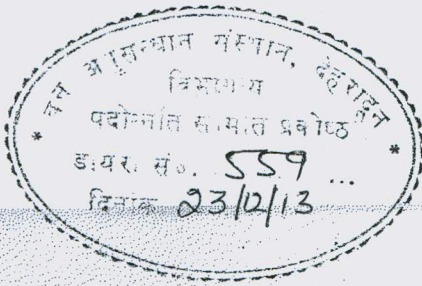 वन अनुसन्धान संस्थान, देहरादून
विभागीय
पदोन्नति समिति प्रकोष्ठ
डायर. सं०. 559 ...
दिनांक 23/12/13